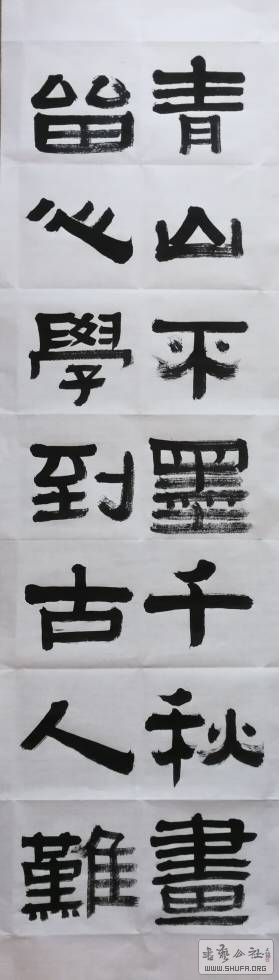 青山不墨千秋畫
留心學到古人難
書藝公社
WWW.SHUFA.ORG